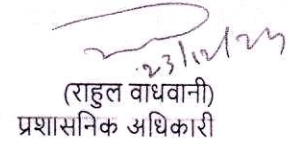 23/12/24
(राहुल वाधवानी)
प्रशासनिक अधिकारी